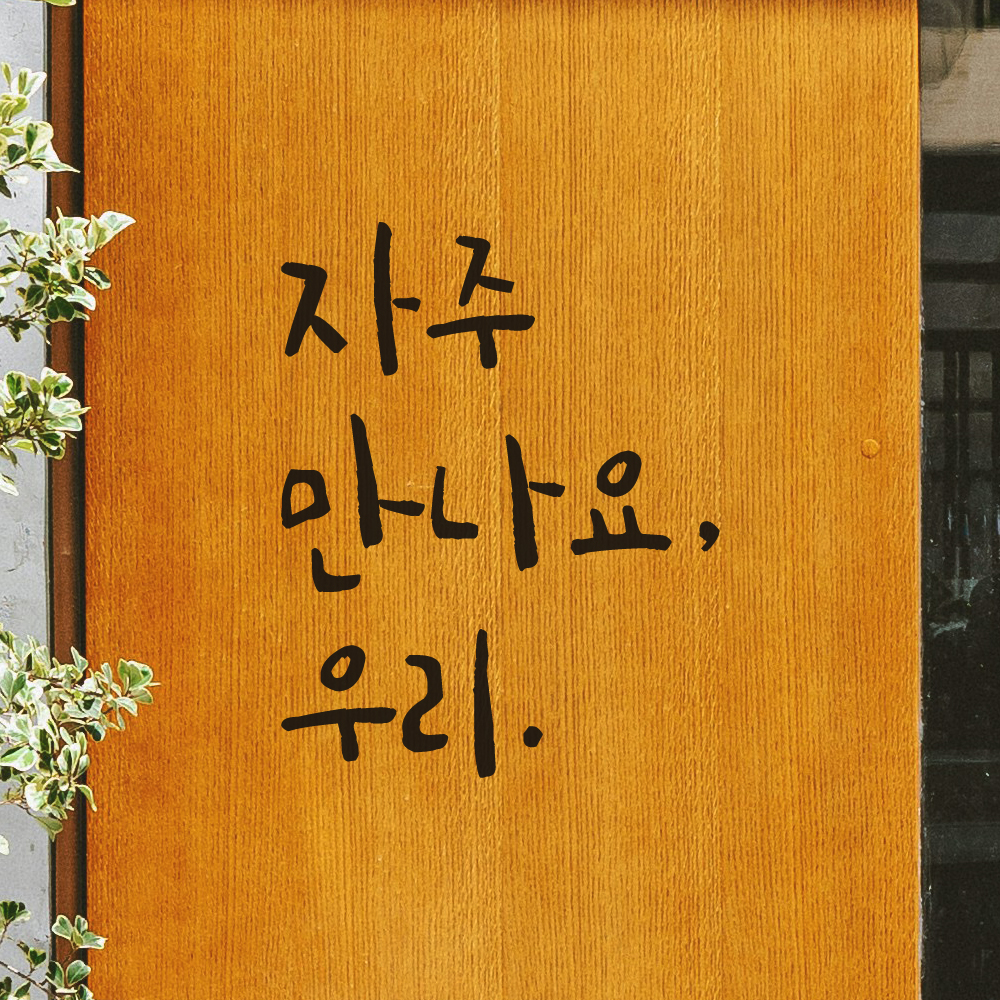 자주
만나요,
우리.